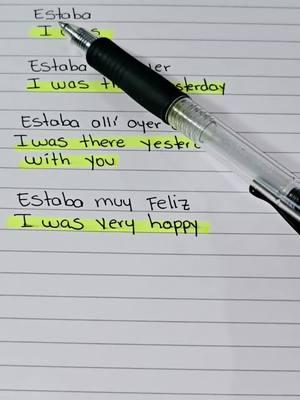 Estaba
I
Estaba
I was
Estaba allí ayer
I was there
with you
Estaba muy Feliz
I was very happy